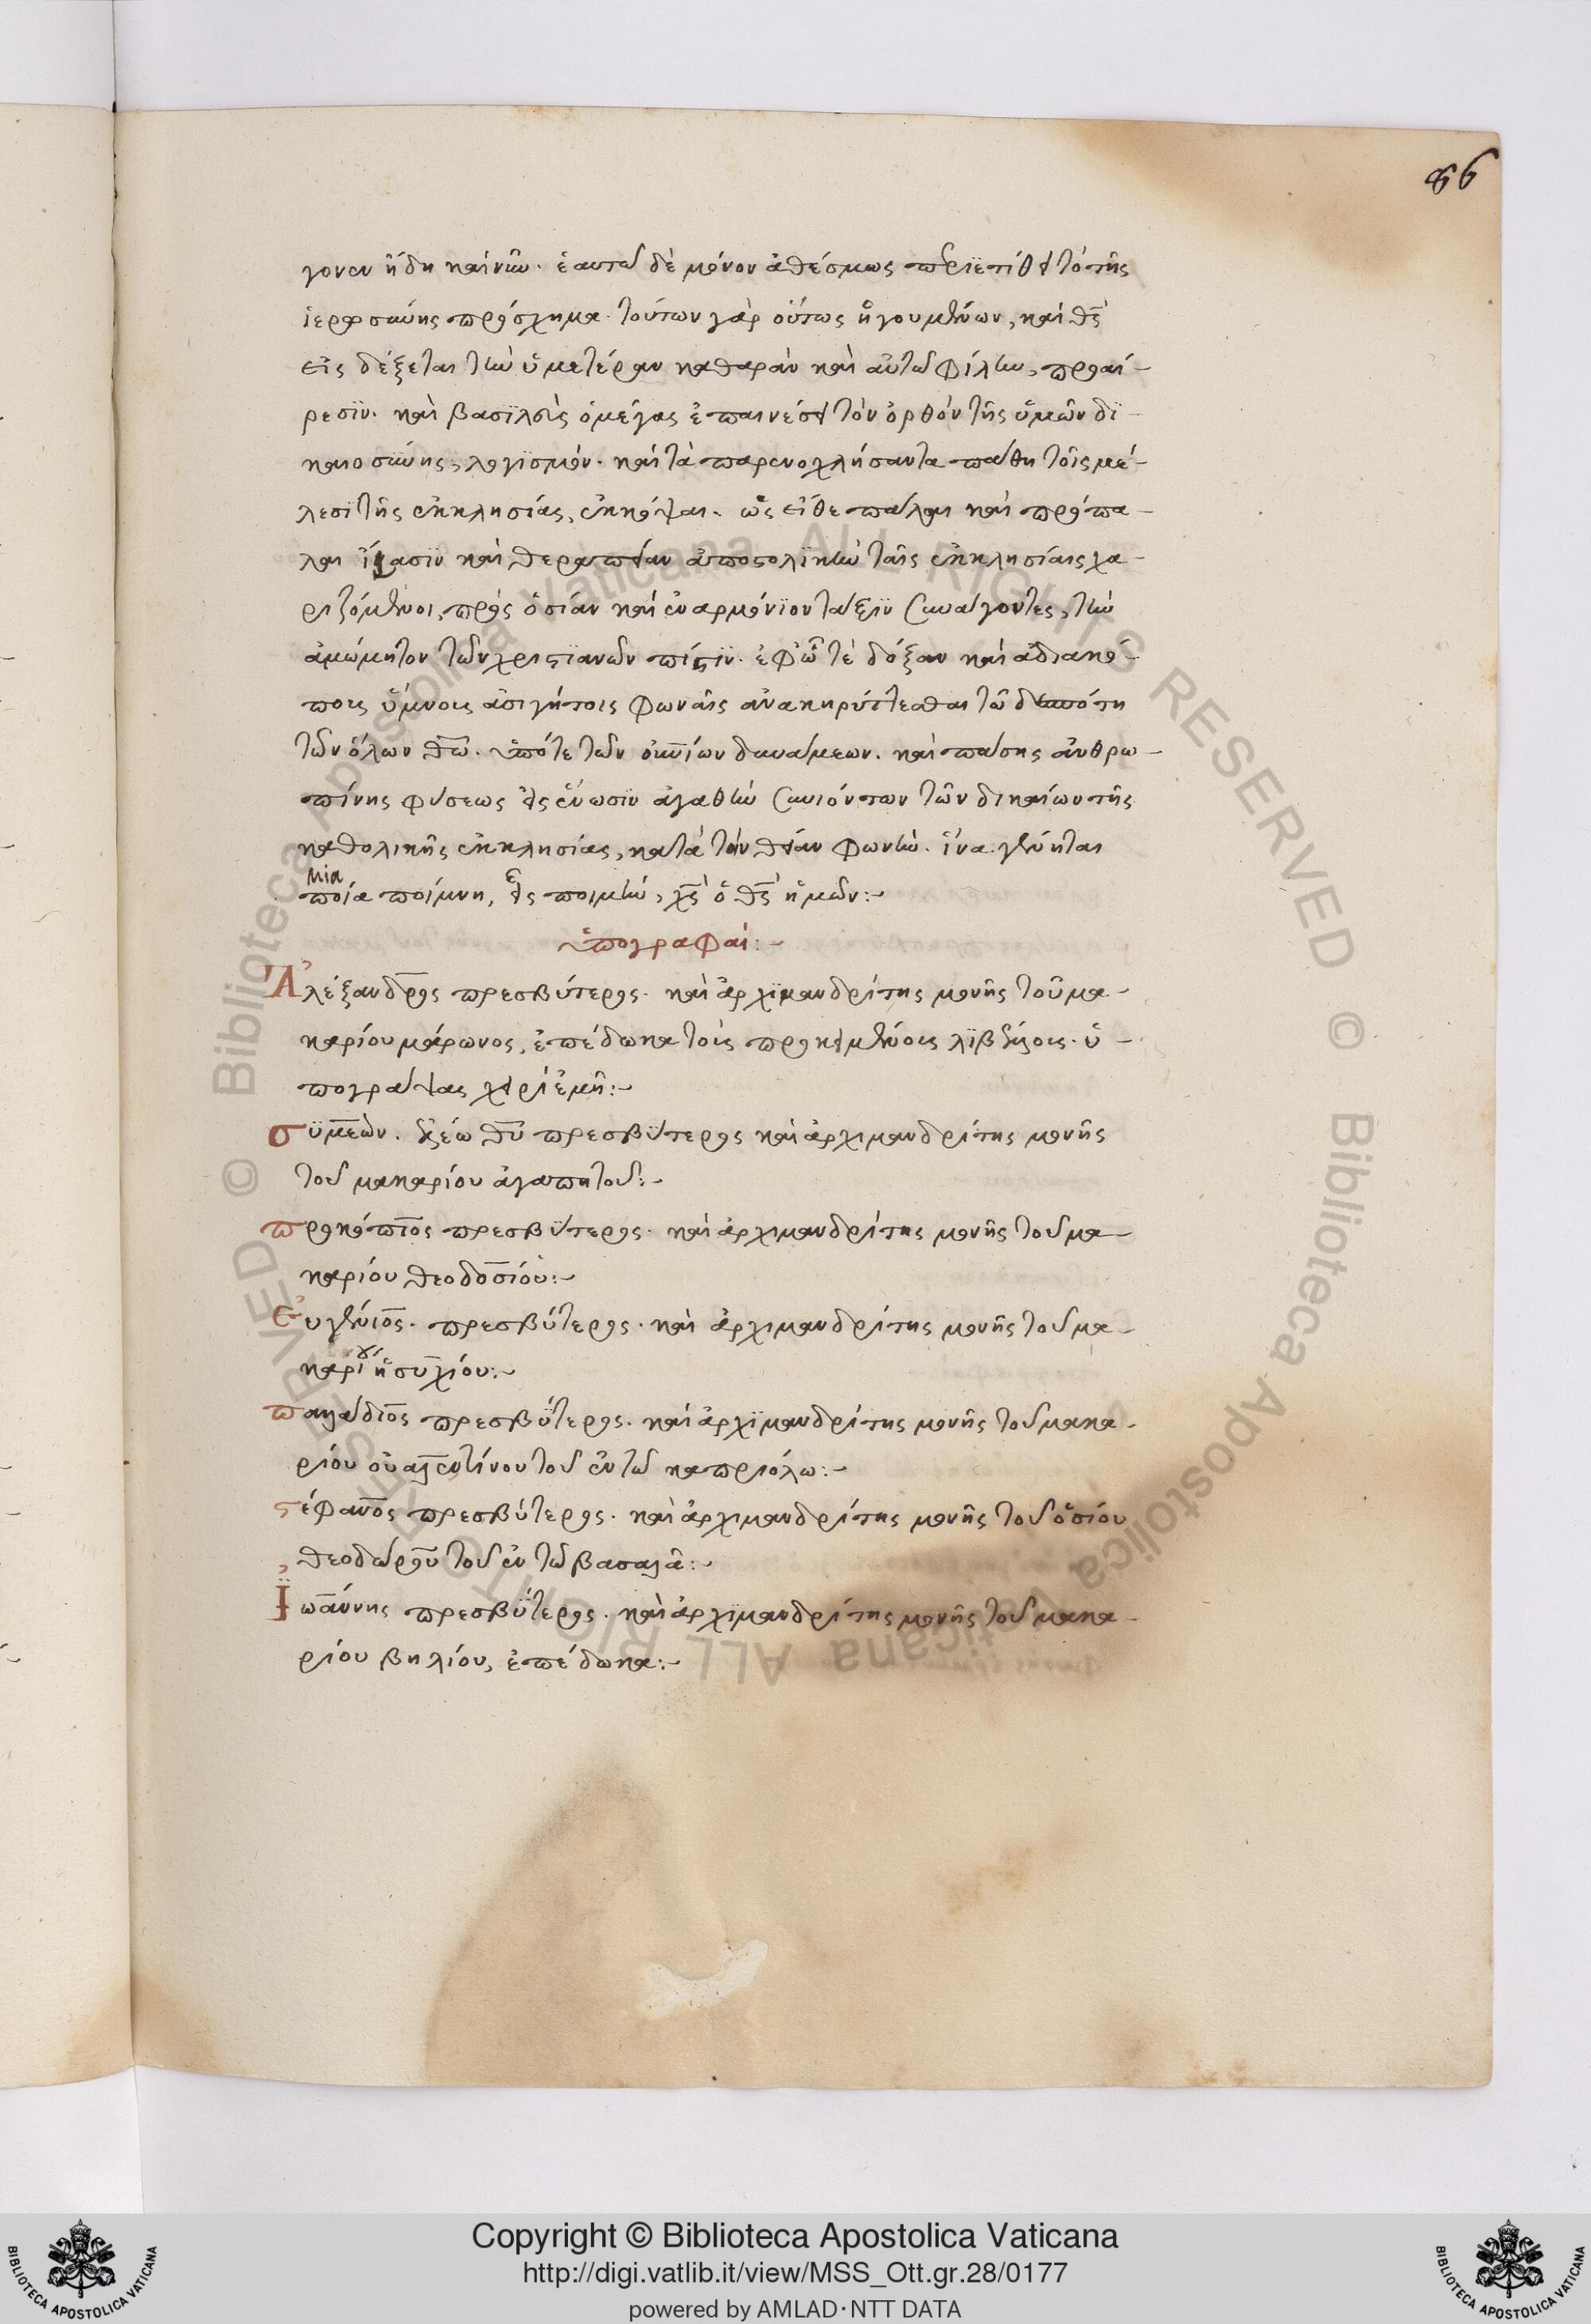 66
γονεν ἤδη καινῶν. ἑαυτῶ δὲ μόνον ἀθέσμως περιετίθει τὸ τῆς
ἱερωσύνης πρόσχημα. τούτων γὰρ οὕτως ἡγουμένων, καὶ θς
εἰς δέξεται τὴν ὑμετέραν καθαρὰν καὶ αὐτῶ φίλην, προαί-
ρεσϊν. καὶ βασϊλεὺς ὁ μέγας ἐπαινέσει τὸν ὀρθὸν τῆς ὑμῶν δϊ-
καιοσύνης, λογϊσμόν. καὶ τὰ παρενοχλήσαντα πάθη τοῖς μέ-
λεσϊ τῆς ἐκκλησίας, ἐκκόψαι. ὡς εἴθε πάλαι καὶ πρόπα-
λαι ἴασιν καὶ θεραπείαν ἀποστολϊκὴν ταῖς ἐκκλησίαις χα-
ριζόμενοι, πρὸς ὁσίαν καὶ ἐναρμόνϊον τάξϊν συνάγοντες, τὴν
ἀμώμητον τῶν χριστϊανῶν πίστϊν. ἐφ' ὧ τὲ δόξαν καὶ ἀδιακό-
ποις ὕμνοις ἀσιγήτοις φωναῖς ἀνακηρύττεσθαι τῶ δεσπότη
τῶν ὅλων θω. ὑπό τε τῶν οὐνίων δυνάμεων. καὶ πάσης ἀνθρω-
πίνης φύσεως εἰς ἕνωσϊν ἀγαθὴν συνιόντων τῶν δικαίων τῆς
καθολικῆς ἐκκλησίας, κατὰ τὴν θείαν φωνὴν. ἵνα γένηται
μία
ποία ποίμνη, εἷς ποιμὴν, χς ὁ θς ἡμῶν:~
ὑπογραφαὶ:~
Ἀλέξανδρος πρεσβύτερος. καὶ ἀρχϊμανδρίτης μονῆς τοῦ μα-
καρίου μάρωνος, ἐπέδωκα τοῖς προκειμένοις λϊβέλοις. ὑ-
πογράψας χειρὶ ἐμῆ:~
σϋμεὼν. ἐλέω θυ πρεσβϋτερος καὶ ἀρχιμανδρίτης μονῆς
τοῦ μακαρίου ἀγαπητοῦ:~
προκόπιος πρεσβϋτερος. καὶ ἀρχιμανδρίτης μονῆς τοῦ μα-
καρίου θεοδοσίου:~
Εὐγένιος. πρεσβύτερος. καὶ ἀρχιμανδρίτης μονῆς τοῦ μα-
καρίου ἡσυχίου:~
παλάδιος πρεσβϋτερος. καὶ ἀρχϊμανδρίτης μονῆς τοῦ μακα-
ρίου οὐαλεντίνου τοῦ ἐν τῶ καπριόλω:~
στέφανος πρεσβύτερος. καὶ ἀρχιμανδρίτης μονῆς τοῦ ὁσίου
θεοδώρου τοῦ ἐν τῶ βασαλᾶ:~
Ἰωάννης πρεσβϋτερος. καὶ ἀρχϊμανδρίτης μονῆς τοῦ μακα-
ρίου βηλίου, ἐπέδωκα:~
© Biblioteca Apostolica Vaticana ALL RIGHTS RESERVED © Biblioteca Apostolica Vaticana ALL RIGHTS RESERVED
Copyright © Biblioteca Apostolica Vaticana
http://digi.vatlib.it/view/MSS_Ott.gr.28/0177
powered by AMLAD·NTT DATA
BIBLIOTECA APOSTOLICA VATICANA
BIBLIOTECA APOSTOLICA VATICANA